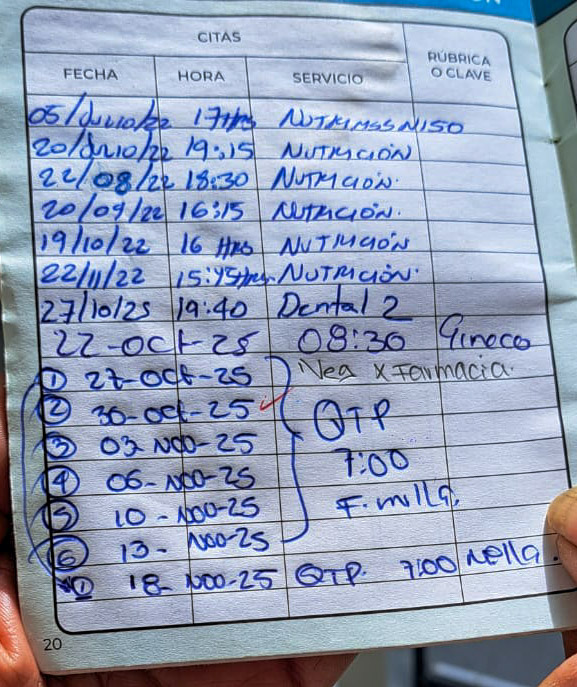 CITAS
FECHA HORA SERVICIO RÚBRICA O CLAVE
05/Julio/22 17Hrs NUTRIMSS NISO
20/Julio/22 19:15 NUTRICIÓN
22/08/22 18:30 NUTRICIÓN.
20/09/22 16:15 NUTRICIÓN.
19/10/22 16 Hrs NUTRICIÓN
22/11/22 15:45Hrs. NUTRICIÓN.
27/10/25 19:40 Dental 2
22-Oct-25 08:30 Gineco
① 27-Oct-25 x Farmacia.
② 30-Oct-25 QTP
③ 03-Nov-25 7:00
④ 06-Nov-25
⑤ 10-Nov-25
⑥ 13-Nov-25
18-Nov-25 QTP. 7:00
20